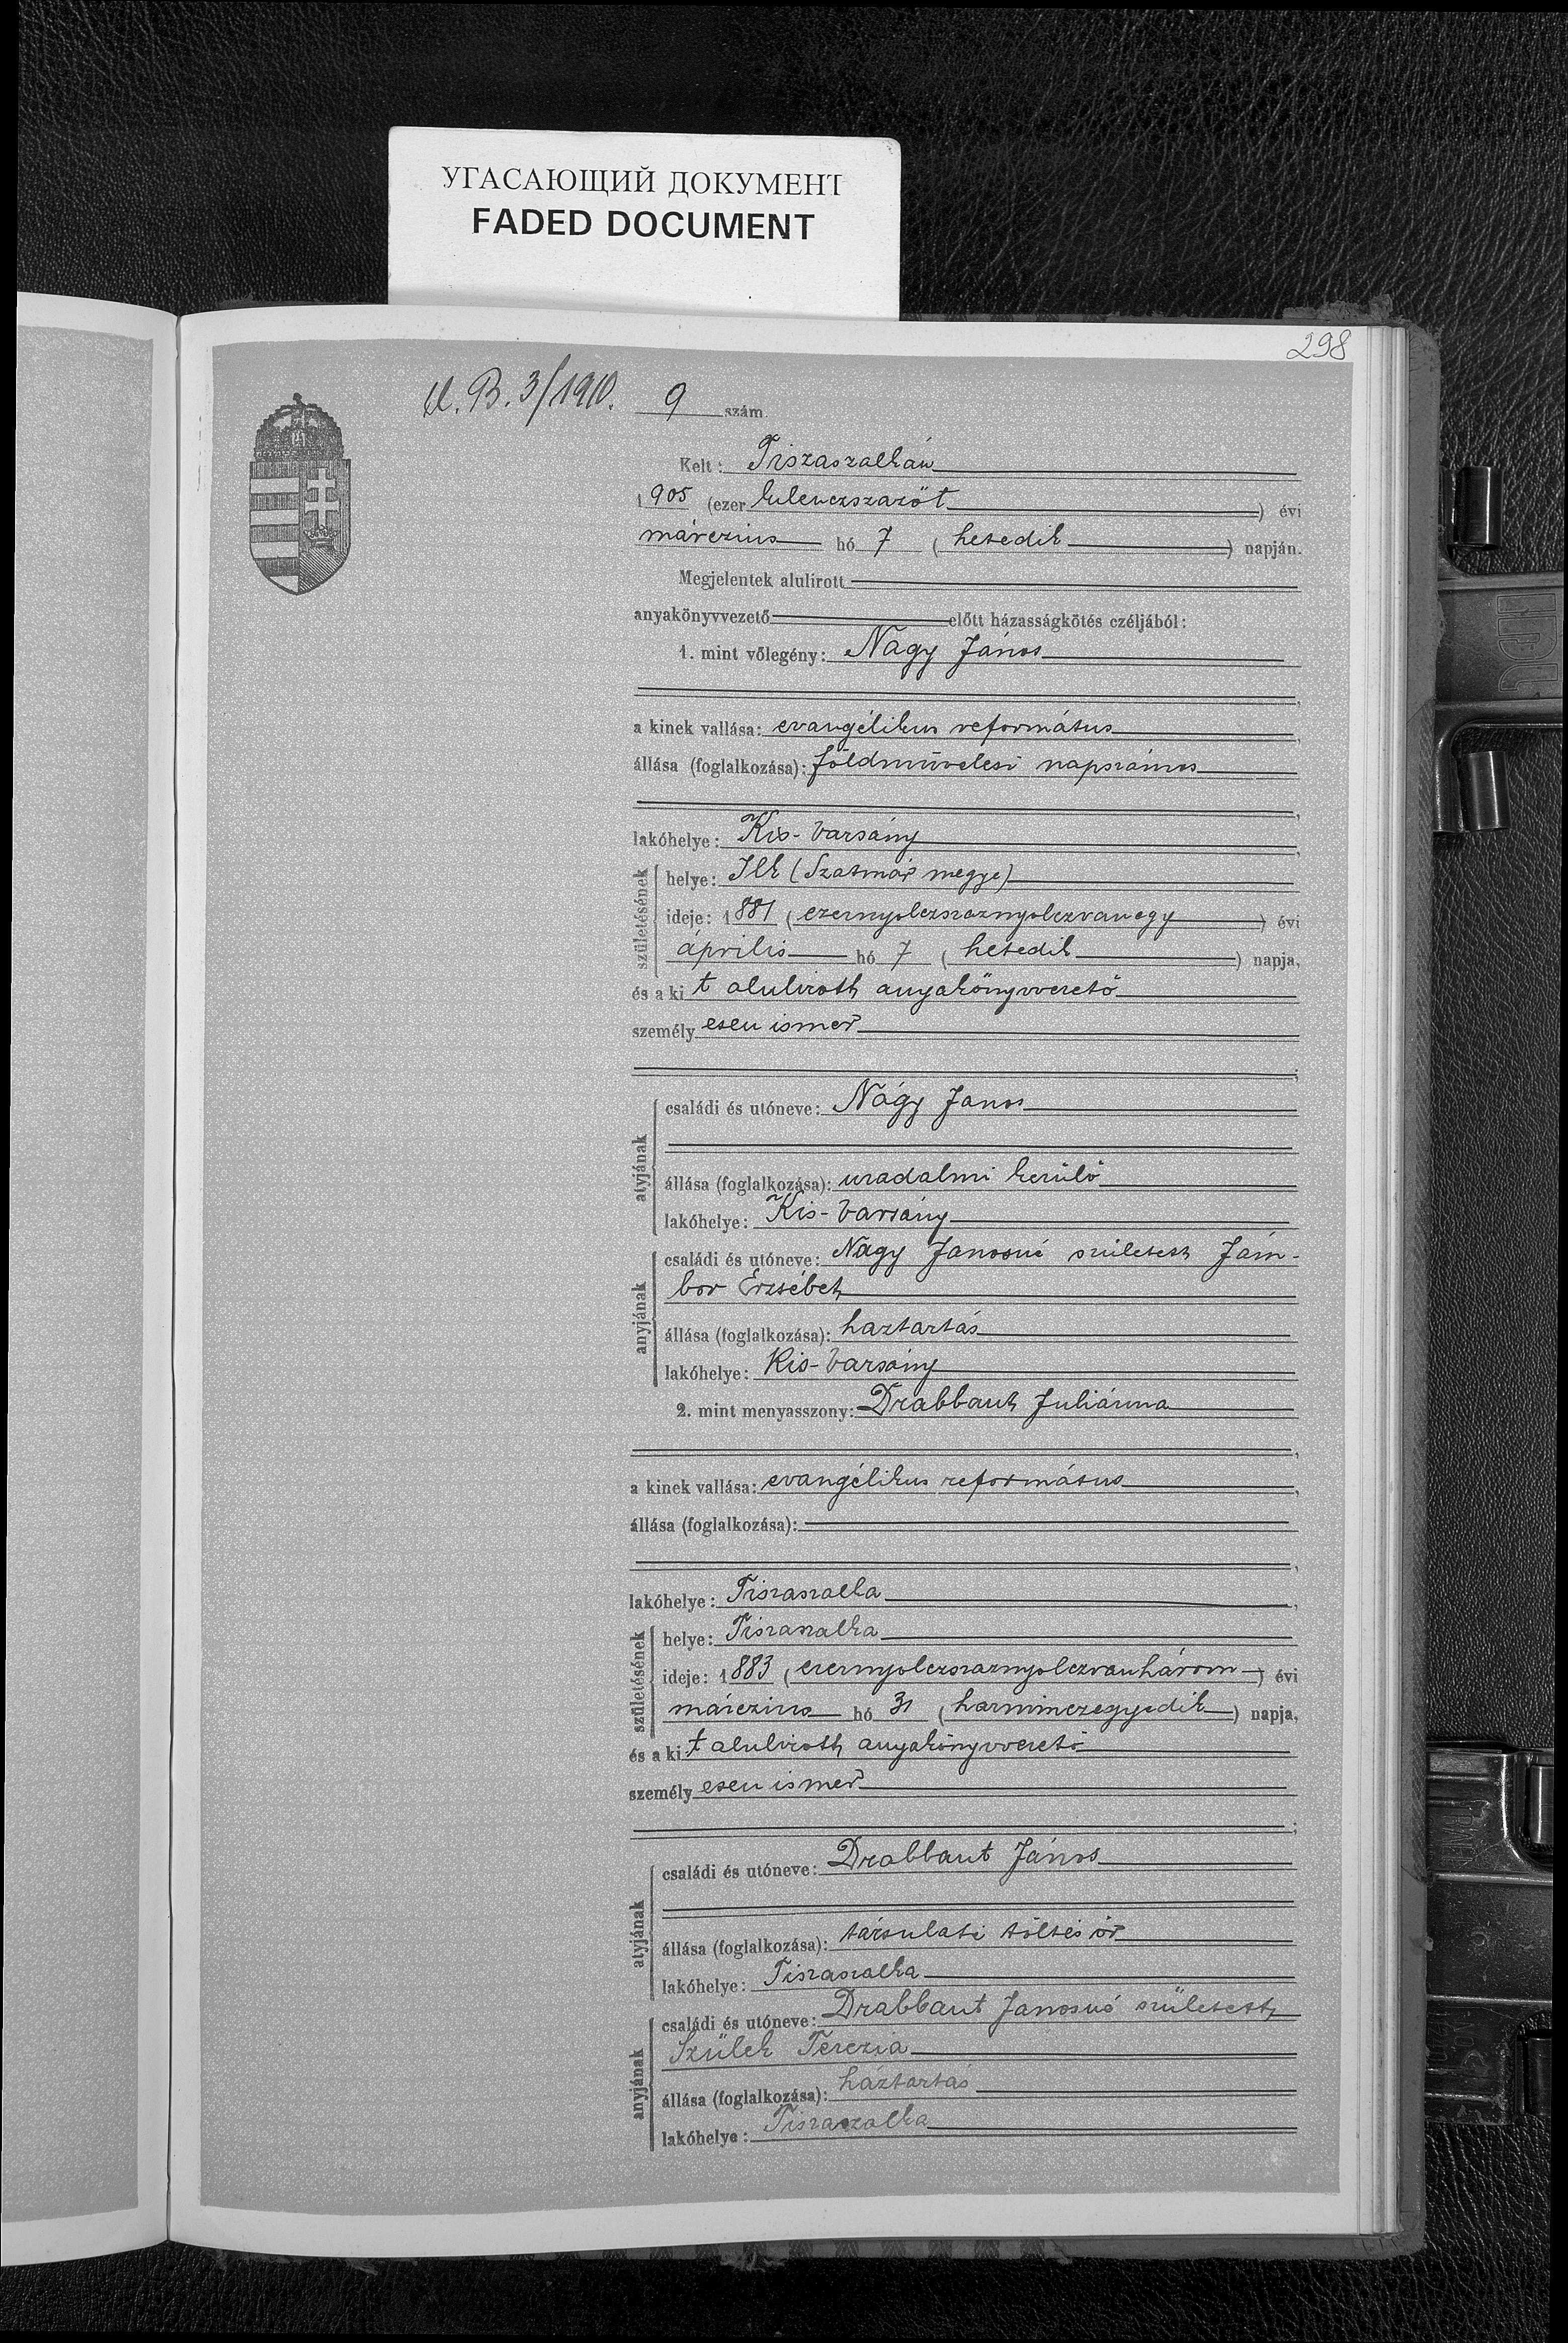 УГАСАЮЩИЙ ДОКУМЕНТ
FADED DOCUMENT
298
B. 3/1910. 9 szám.
Kelt: Tiszaszalkán
1905 (ezer kilenczszazöt) évi
márczius hó 7 (hetedik) napján.
Megjelentek alulirott
anyakönyvvezető előtt házasságkötés czéljából:
1. mint vőlegény: Nagy János
a kinek vallása: evangélikus református,
állása (foglalkozása): földmüvelesi napszámos
lakóhelye: Kis-Varsány,
születésének
helye: Ilk (Szatmár megye)
ideje: 1881 (ezernyolczszaznyolczvanegy) évi
április hó 7 (hetedik) napja,
és a kit alulirott anyakönyvvezető
személyesen ismer
atyjának
családi és utóneve: Nágy Janos
állása (foglalkozása): uradalmi kerülő
lakóhelye: Kis-Varsány
anyjának
családi és utóneve: Nagy Janosné született Jám-
bor Erzsébet
állása (foglalkozása): haztartás
lakóhelye: Kis-Varsány
2. mint menyasszony: Drabbant Juliánna
a kinek vallása: evangélikus református,
állása (foglalkozása):
lakóhelye: Tiszaszalka,
születésének
helye: Tiszaszalka
ideje: 1883 (ezernyolczszaznyolczvanhárom) évi
márczius hó 31 (harminczegyedik) napja,
és a kit alulirott anyakönyvvezető
személyesen ismer
atyjának
családi és utóneve: Drabbant János
állása (foglalkozása): társulati töltés őr
lakóhelye: Tiszaszalka
anyjának
családi és utóneve: Drabbant Janosné született
Szülek Terezia
állása (foglalkozása): háztartás
lakóhelye: Tiszaszalka